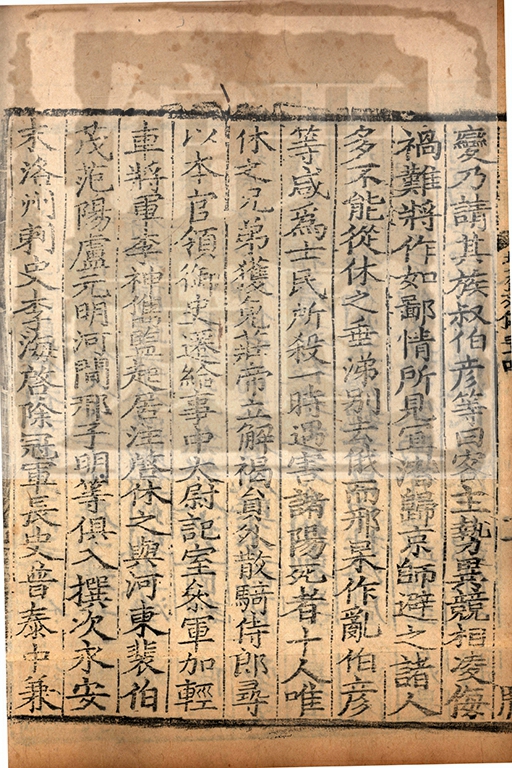 變乃請其族叔伯彦等曰客主勢異競相凌侮
禍難將作如鄙情所見宜潛歸京師避之諸人
多不能從休之垂涕别去俄而邢杲作亂伯彦
等咸爲士民所殺一時遇害諸陽死者十人唯
休之兄弟獲免莊帝立解褐員外散騎侍郎尋
以本官領御史遷給事中太尉記室參軍加輕
車將軍李神儁監起居注啓休之與河東裴伯
茂范陽盧元明河間邢子明等俱入撰次永安
末洛州刺史李海啓除冠軍長史普泰中兼